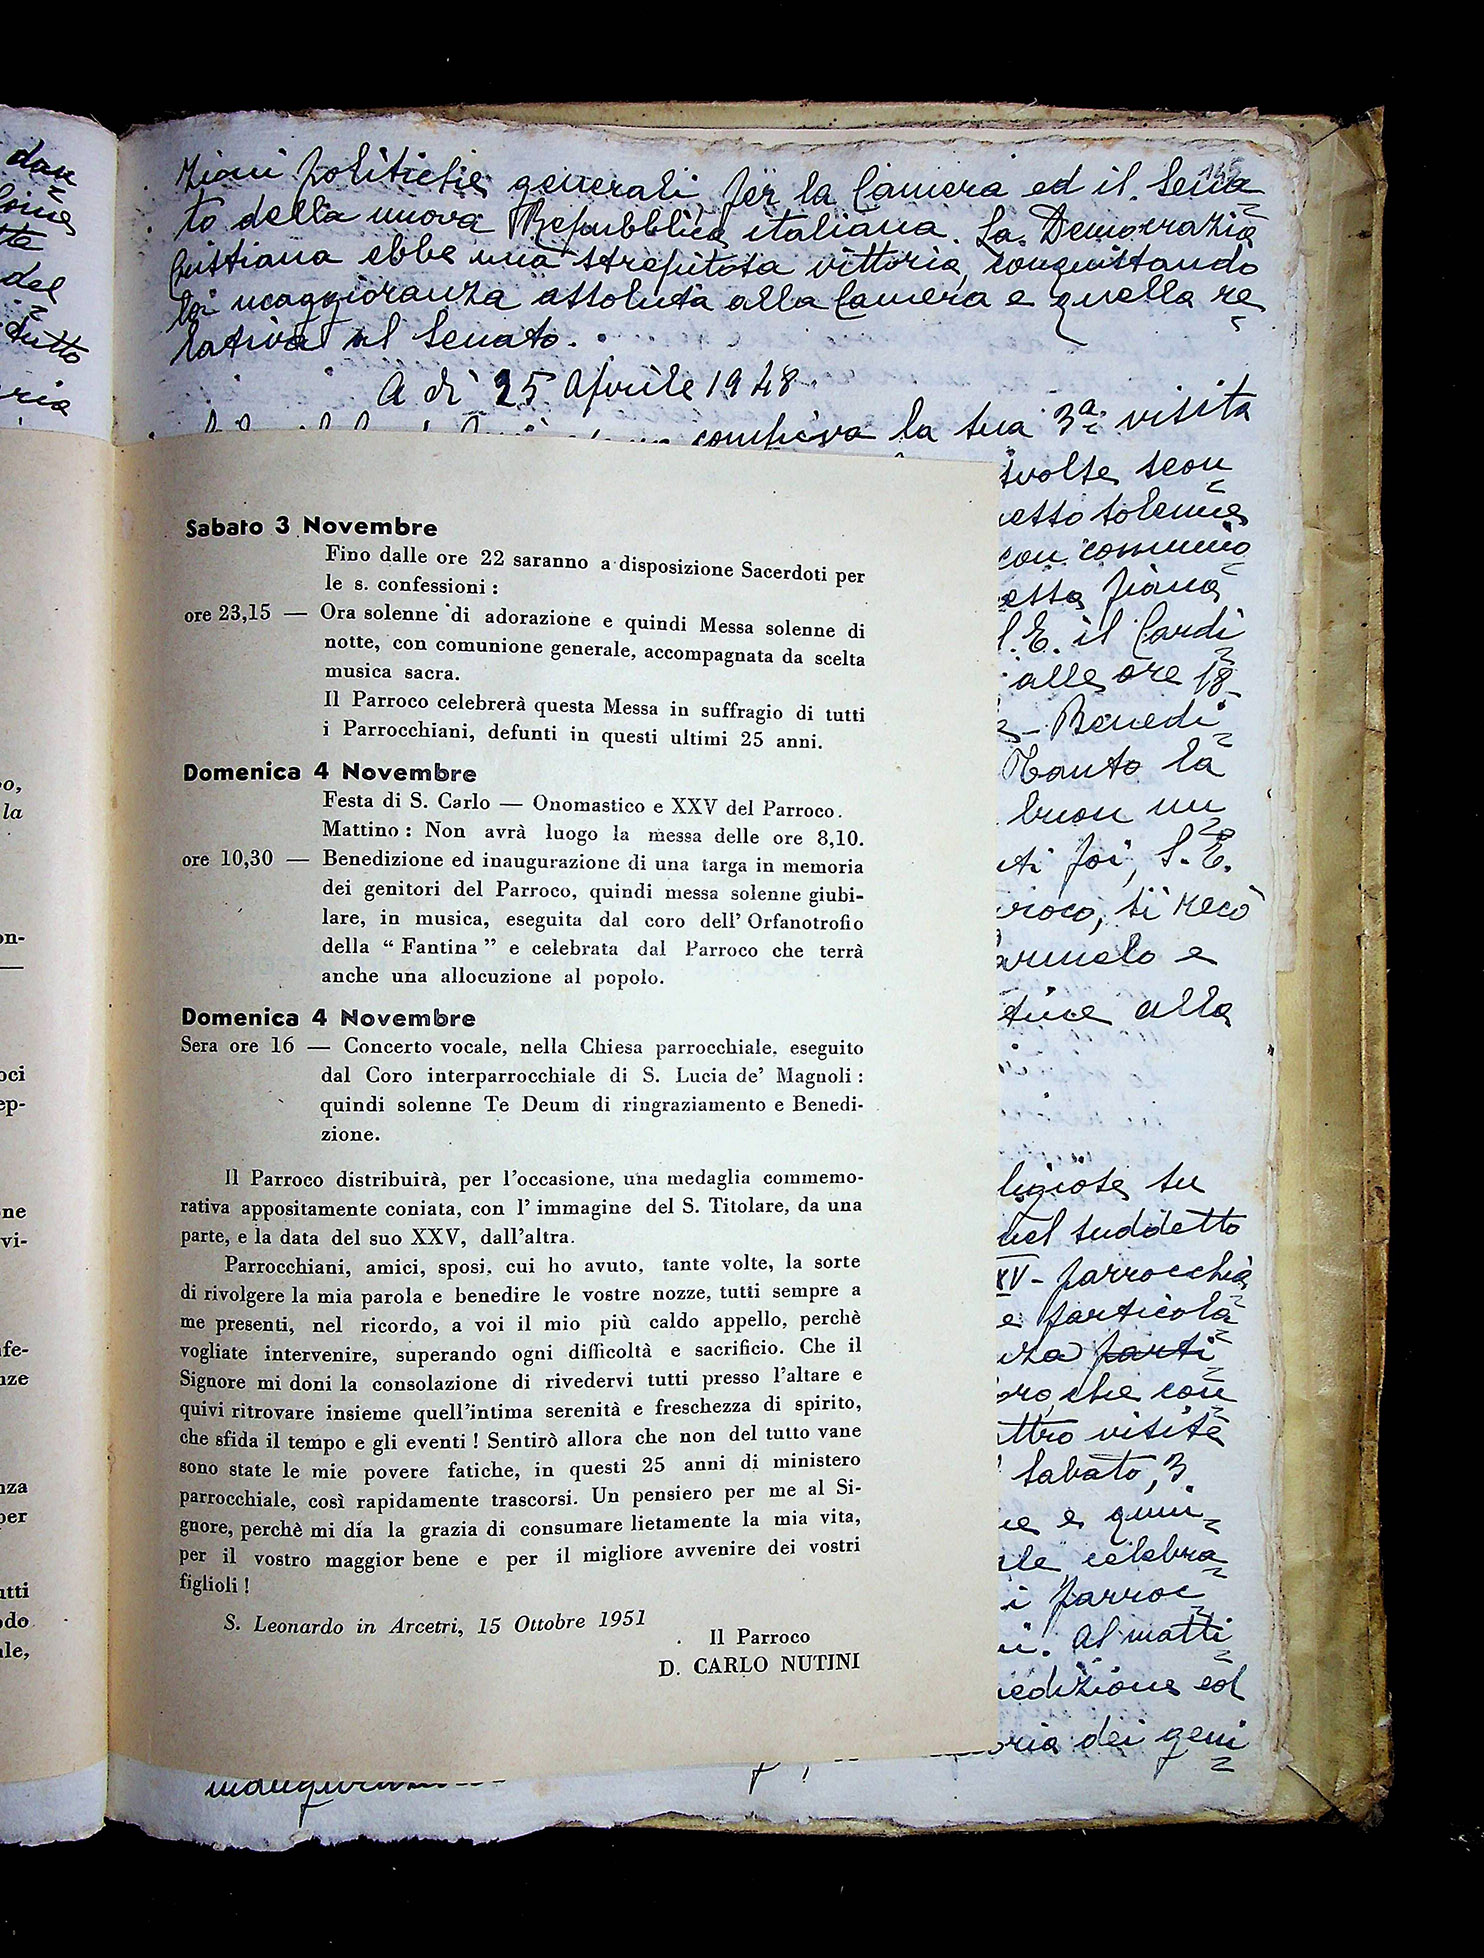 dan
tte
del
tutto
ria
145
zioni politiche generali, per la Camera ed il Sena
to della nuova Repubblica italiana. La Democrazia
Cristiana ebbe una strepitosa vittoria, conquistando
la maggioranza assoluta alla Camera e quella re
lativa al Senato.
A dì 25 Aprile 1948.
compiva la sua 3ª visita
svolse
solenne
con comunio
essa piana
S.E. il Cardi
alle ore 18
Benedi
Tanto la
buon nu
ti poi, S.E.
roco, si recò
e
alla
ligiose su
nel suddetto
XV- parrocchia
e particola
za parti
oro, che con
ttro visite
Sabato, 3
e quin
le celebra
i parroc
i. Al matti
nedizione ed
oria dei geni
o,
la
on-
—
oci
ep-
ne
vi-
fe-
ze
nza
per
utti
odo
ale,
Sabato 3 Novembre
Fino dalle ore 22 saranno a disposizione Sacerdoti per
le s. confessioni :
ore 23,15 — Ora solenne di adorazione e quindi Messa solenne di
notte, con comunione generale, accompagnata da scelta
musica sacra.
Il Parroco celebrerà questa Messa in suffragio di tutti
i Parrocchiani, defunti in questi ultimi 25 anni.
Domenica 4 Novembre
Festa di S. Carlo — Onomastico e XXV del Parroco.
Mattino : Non avrà luogo la messa delle ore 8,10.
ore 10,30 — Benedizione ed inaugurazione di una targa in memoria
dei genitori del Parroco, quindi messa solenne giubi-
lare, in musica, eseguita dal coro dell' Orfanotrofio
della “ Fantina ” e celebrata dal Parroco che terrà
anche una allocuzione al popolo.
Domenica 4 Novembre
Sera ore 16 — Concerto vocale, nella Chiesa parrocchiale, eseguito
dal Coro interparrocchiale di S. Lucia de' Magnoli :
quindi solenne Te Deum di ringraziamento e Benedi-
zione.
Il Parroco distribuirà, per l'occasione, una medaglia commemo-
rativa appositamente coniata, con l' immagine del S. Titolare, da una
parte, e la data del suo XXV, dall'altra.
Parrocchiani, amici, sposi, cui ho avuto, tante volte, la sorte
di rivolgere la mia parola e benedire le vostre nozze, tutti sempre a
me presenti, nel ricordo, a voi il mio più caldo appello, perchè
vogliate intervenire, superando ogni difficoltà e sacrificio. Che il
Signore mi doni la consolazione di rivedervi tutti presso l'altare e
quivi ritrovare insieme quell'intima serenità e freschezza di spirito,
che sfida il tempo e gli eventi ! Sentirò allora che non del tutto vane
sono state le mie povere fatiche, in questi 25 anni di ministero
parrocchiale, così rapidamente trascorsi. Un pensiero per me al Si-
gnore, perchè mi dia la grazia di consumare lietamente la mia vita,
per il vostro maggior bene e per il migliore avvenire dei vostri
figlioli !
S. Leonardo in Arcetri, 15 Ottobre 1951
Il Parroco
D. CARLO NUTINI